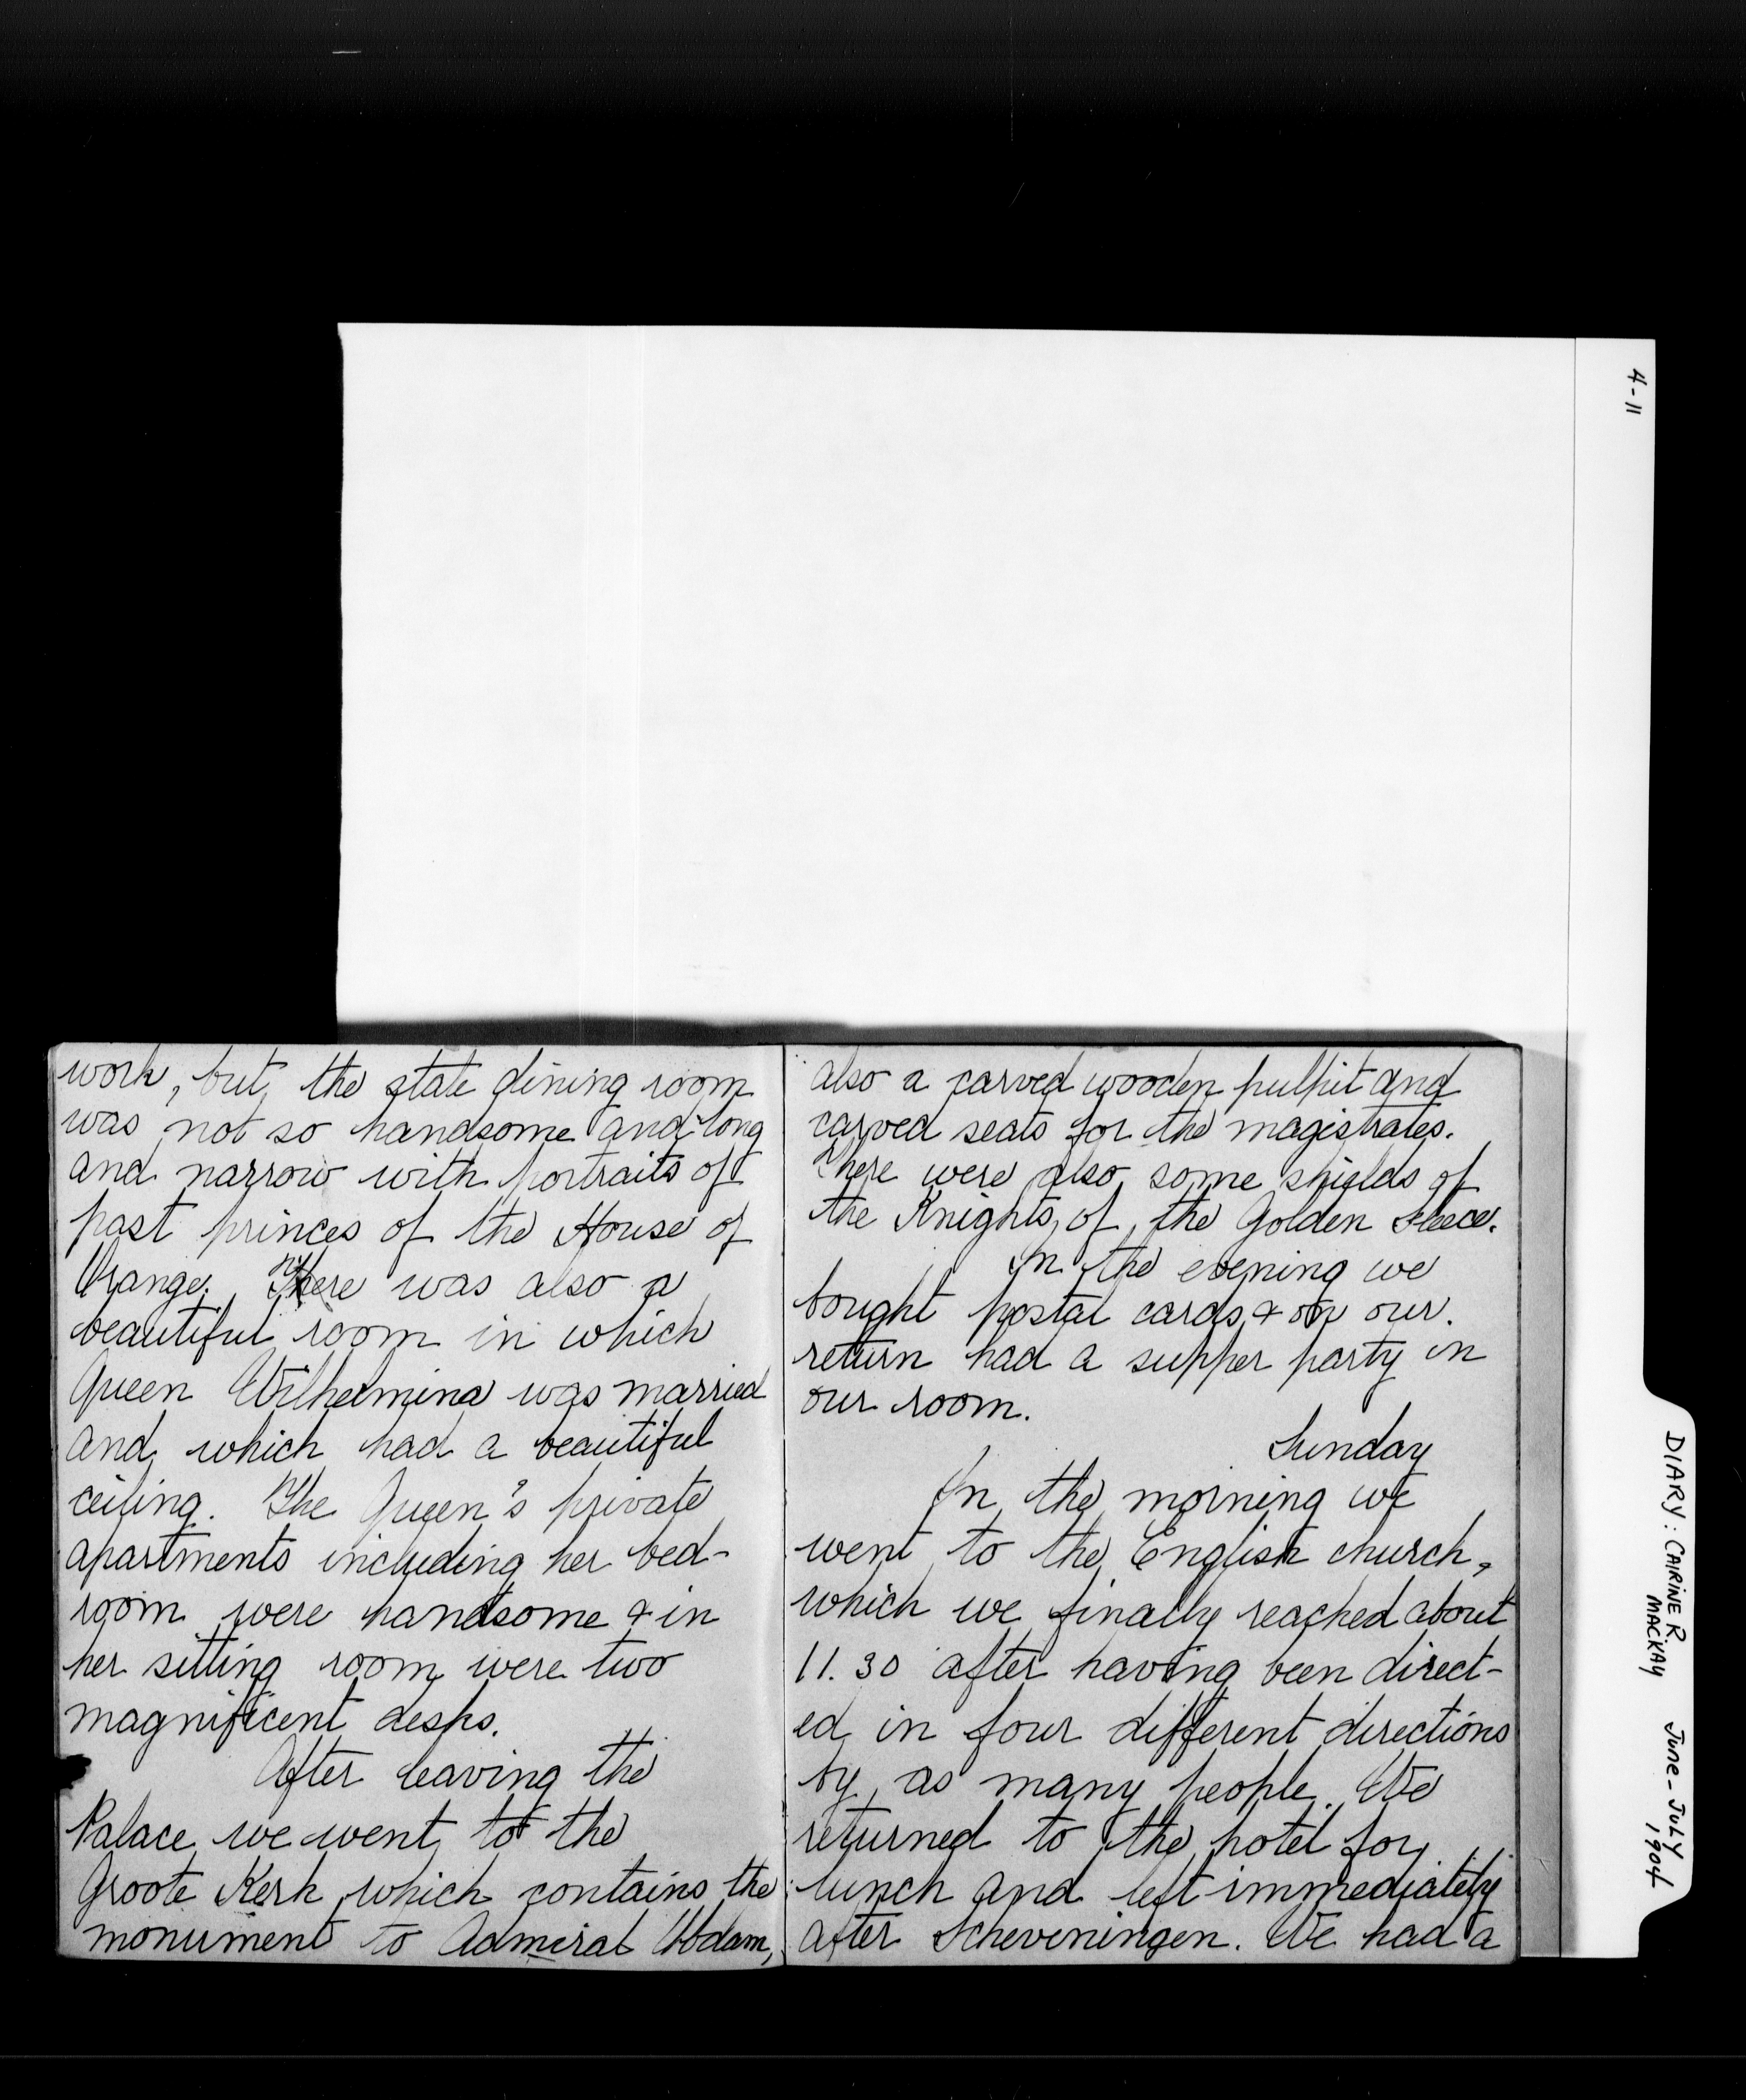 work, but the state dining room
was not so handsome and long
and narrow with portraits of
past princes of the House of
Orange. There was also a
beautiful room in which
Queen Wilhelmina was married
and which had a beautiful
ceiling. The Queen's private
apartments including her bed-
room were handsome & in
her sitting room were two
magnificent desks.
After leaving the
Palace we went to the
Groote Kerk which contains the
monument to Admiral Obdam,
also a carved wooden pulpit and
carved seats for the magistrates.
There were also some shields of
the Knights of the Golden Fleece.
In the evening we
bought postal cards & on our
return had a supper party in
our room.
Sunday
In the morning we
went to the English church,
which we finally reached about
11.30 after having been direct-
ed in four different directions
by as many people. We
returned to the hotel for
lunch and left immediately
after Scheveningen. We had a
4-11
DIARY: CAIRINE R
MACKAY
JUNE-JULY
1904